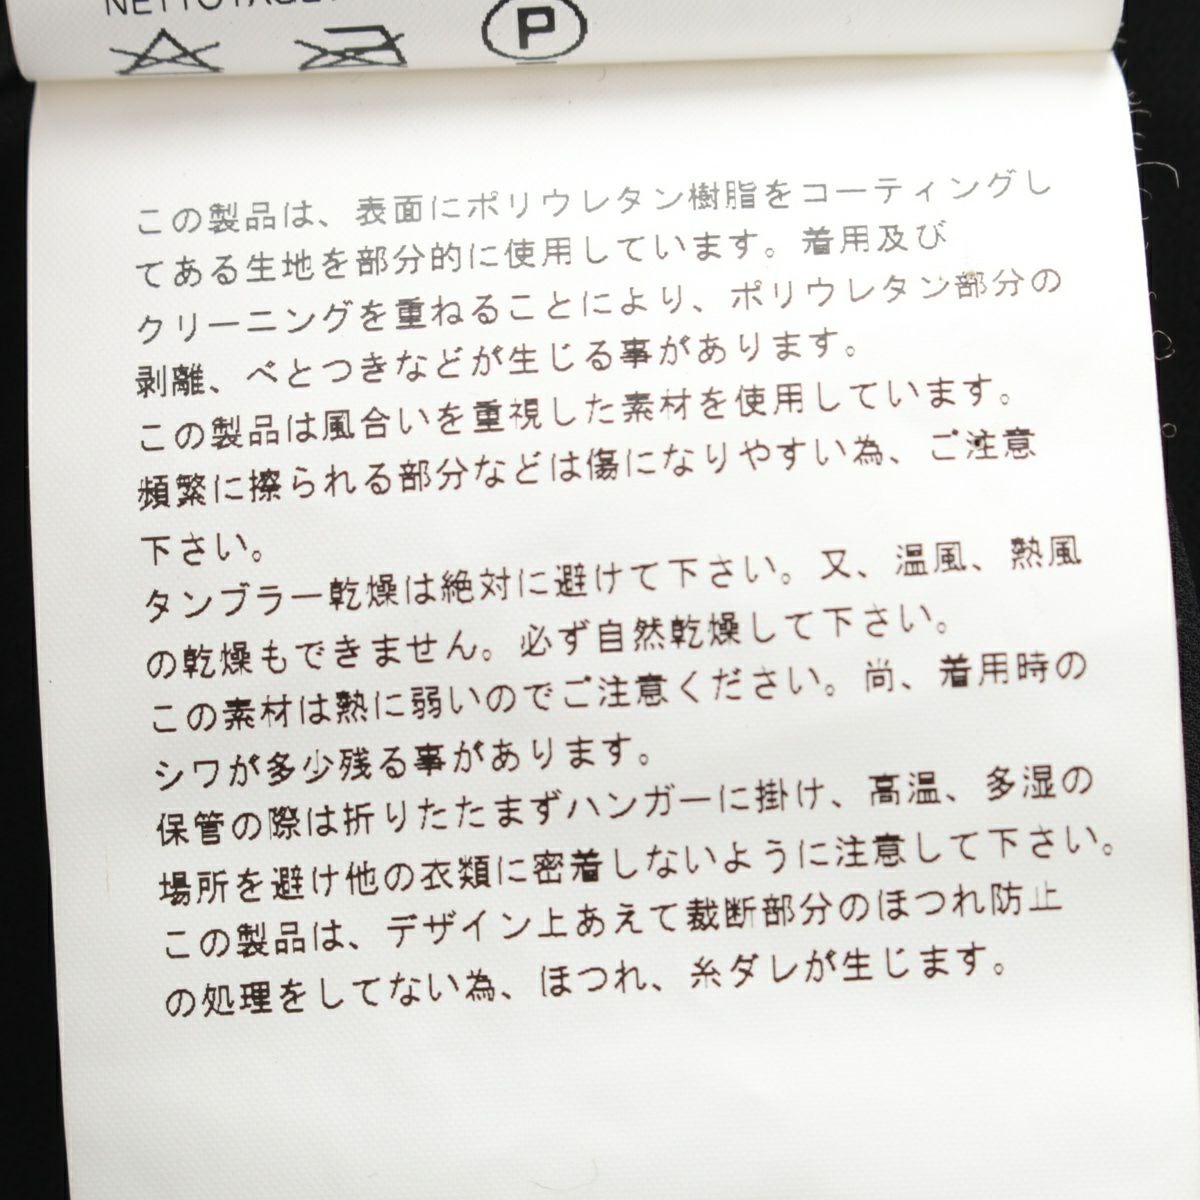 この製品は、表面にポリウレタン樹脂をコーティングし
てある生地を部分的に使用しています。着用及び
クリーニングを重ねることにより、ポリウレタン部分の
剥離、べとつきなどが生じる事があります。
この製品は風合いを重視した素材を使用しています。
頻繁に擦られる部分などは傷になりやすい為、ご注意
下さい。
タンブラー乾燥は絶対に避けて下さい。又、温風、熱風
の乾燥もできません。必ず自然乾燥して下さい。
この素材は熱に弱いのでご注意ください。尚、着用時の
シワが多少残る事があります。
保管の際は折りたたまずハンガーに掛け、高温、多湿の
場所を避け他の衣類に密着しないように注意して下さい。
この製品は、デザイン上あえて裁断部分のほつれ防止
の処理をしてない為、ほつれ、糸ダレが生じます。